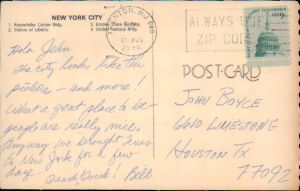 NEW YORK CITY
1. Rockefeller Center Bldg.
2. Station of Liberty
3. Empire State Building
4. United Nations Bldg.
Hola John
The city looks like the
picture - and more!
What a great place to be -
people are really nice.
Anyway we brought Texas
to New York for a few
days.
Bill
ALWAYS USE
ZIP CODE
POST CARD
JOHN BOYCE
6610 LIMESTONE
HOUSTON TX
77092